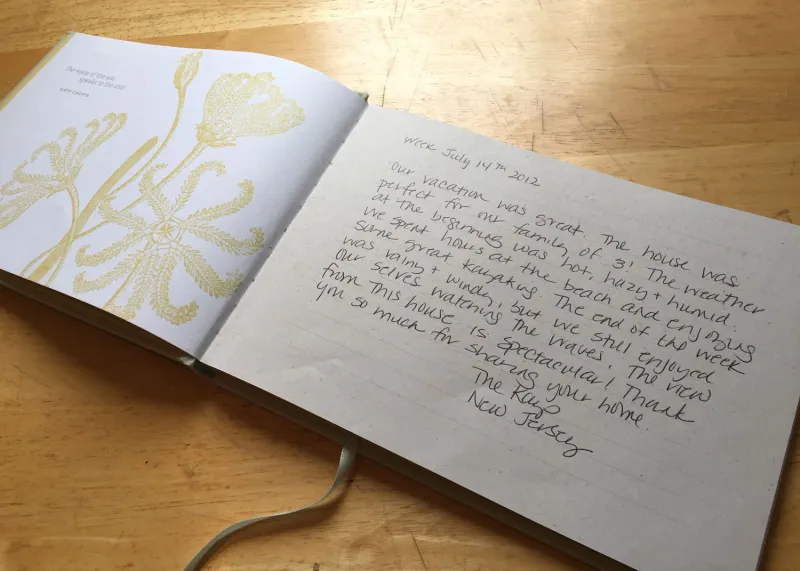 The voice of the sea
speaks to the soul
KATE CHOPIN
Week July 14TH 2012
Our vacation was great. The house was
perfect for our family of 3! The weather
at the beginning was hot, hazy + humid.
We spent hours at the beach and enjoying
some great kayaking. The end of the week
was rainy + windy, but we still enjoyed
our selves watching the waves! The view
from this house is spectacular! Thank
you so much for sharing your home.
The Rays
New Jersey